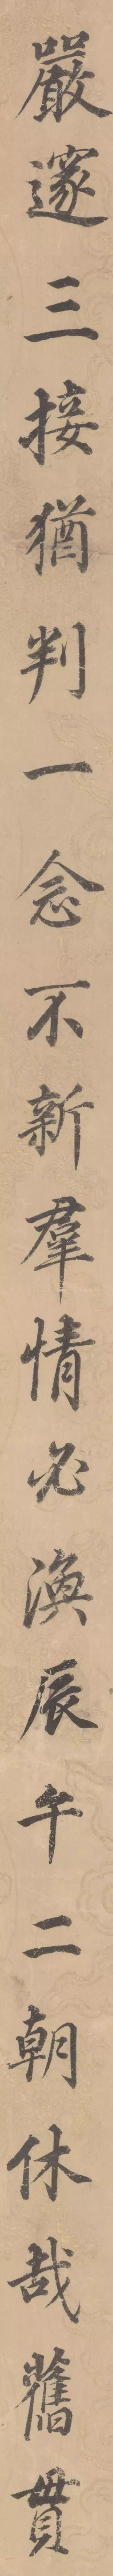 嚴邃三接猶判一念不新羣情必渙辰午二朝休哉舊貫